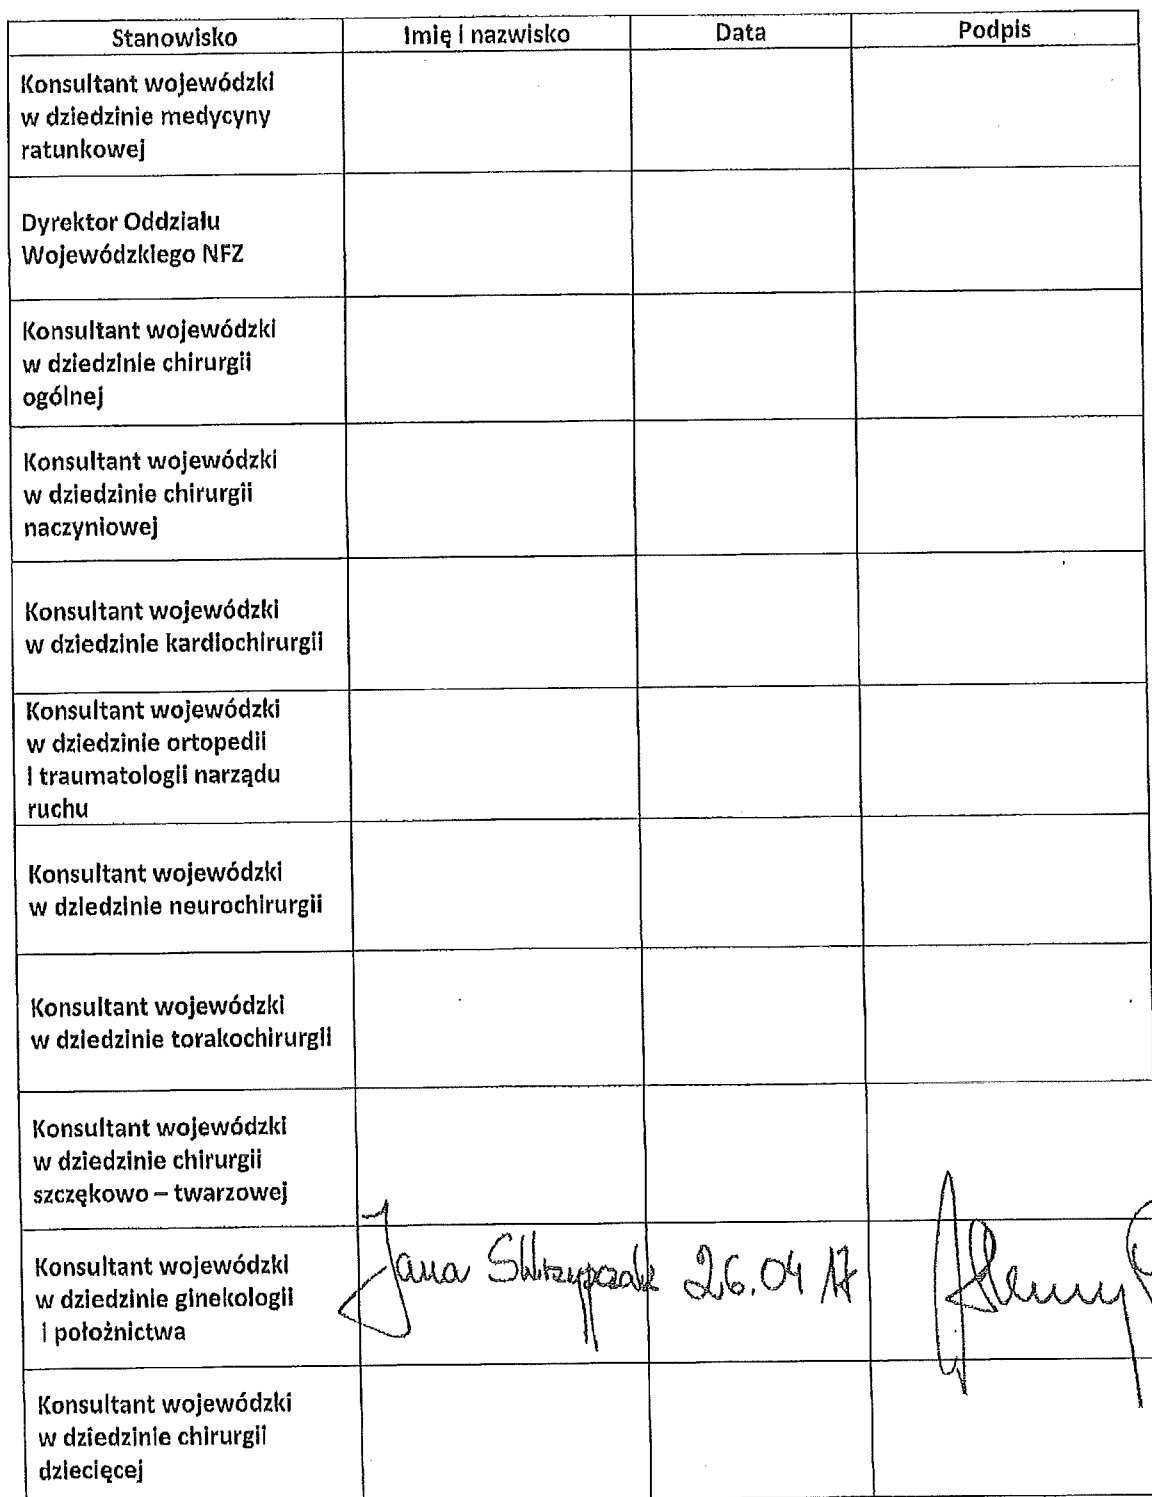 Stanowisko Imię i nazwisko Data Podpis
Konsultant wojewódzki
w dziedzinie medycyny
ratunkowej
Dyrektor Oddziału
Wojewódzkiego NFZ
Konsultant wojewódzki
w dziedzinie chirurgii
ogólnej
Konsultant wojewódzki
w dziedzinie chirurgii
naczyniowej
Konsultant wojewódzki
w dziedzinie kardiochirurgii
Konsultant wojewódzki
w dziedzinie ortopedii
i traumatologii narządu
ruchu
Konsultant wojewódzki
w dziedzinie neurochirurgii
Konsultant wojewódzki
w dziedzinie torakochirurgii
Konsultant wojewódzki
w dziedzinie chirurgii
szczękowo – twarzowej
Konsultant wojewódzki
w dziedzinie ginekologii
i położnictwa
Jana Skrzypczak 26.04 17
Konsultant wojewódzki
w dziedzinie chirurgii
dziecięcej